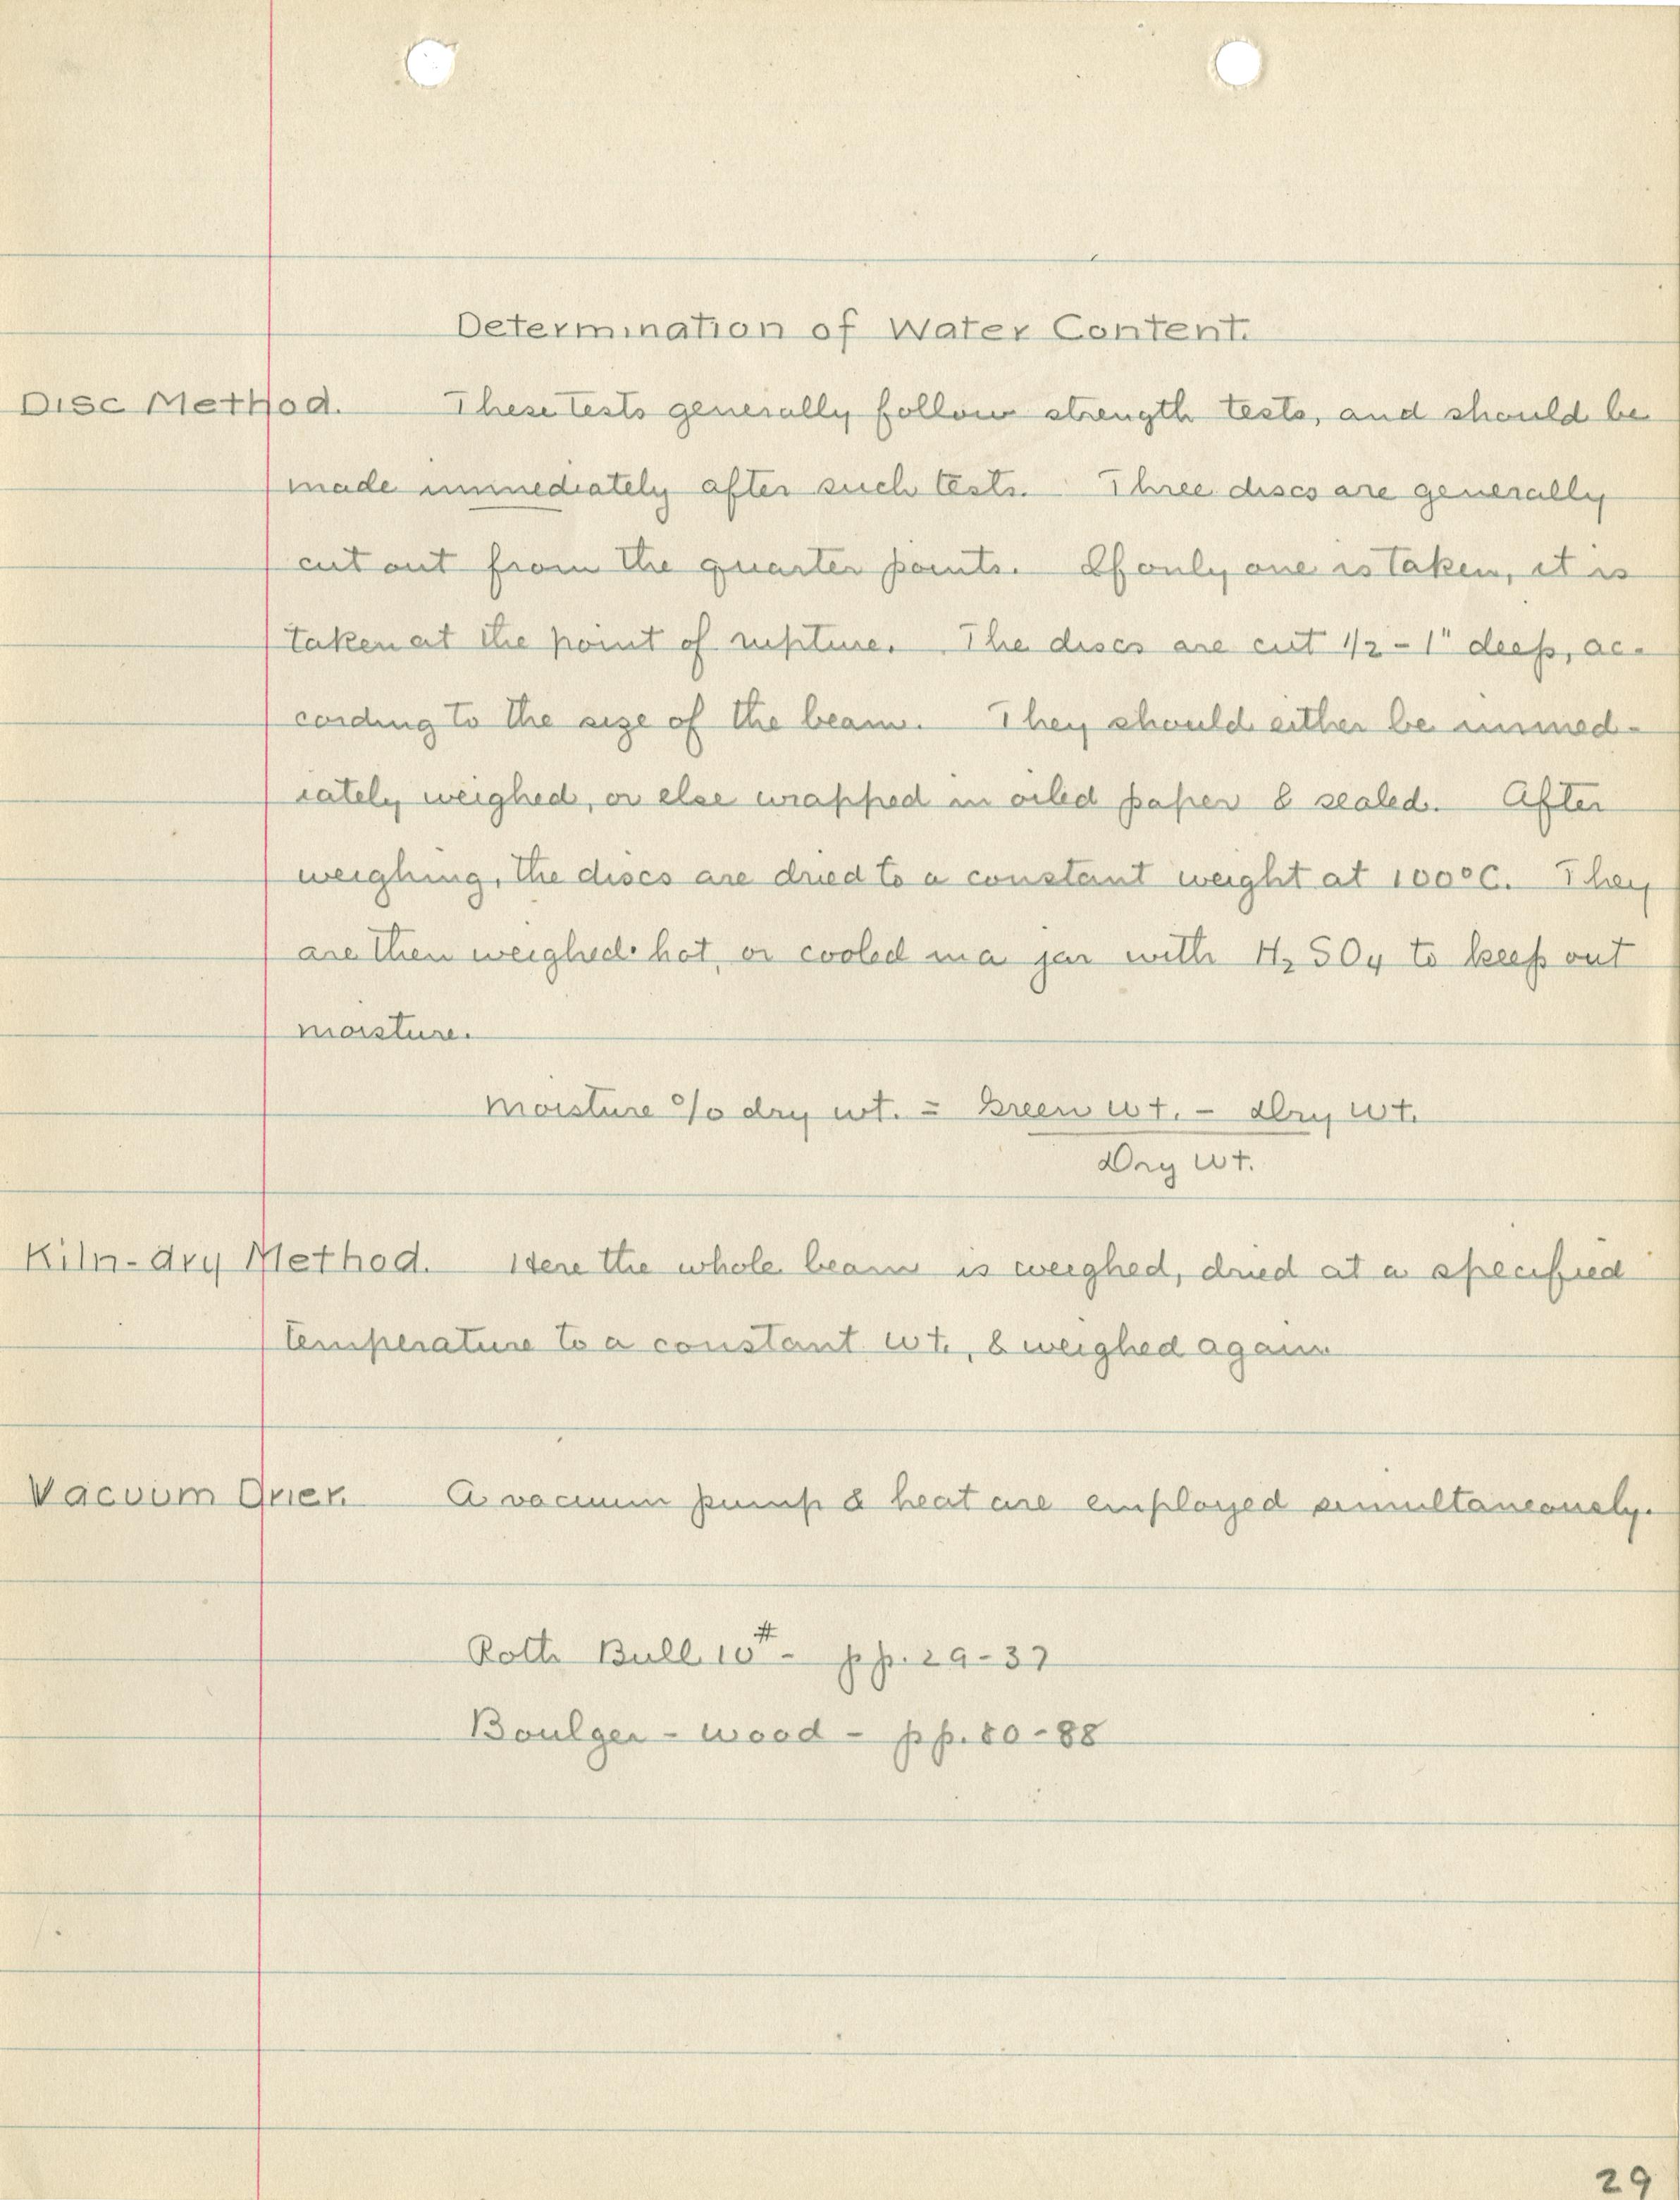 Determination of Water Content.
Disc Method. These tests generally follow strength tests, and should be
made immediately after such tests. Three discs are generally
cut out from the quarter points. If only one is taken, it is
taken at the point of rupture. The discs are cut 1/2 - 1" deep, ac-
cording to the size of the beam. They should either be immed-
iately weighed, or else wrapped in oiled paper & sealed. After
weighing, the discs are dried to a constant weight at 100°C. They
are then weighed hot, or cooled in a jar with H2SO4 to keep out
moisture.
Moisture % dry wt. = Green wt. - dry wt.
Dry wt.
Kiln-dry Method. Here the whole beam is weighed, dried at a specified
temperature to a constant wt., & weighed again
Vacuum Drier. A vacuum pump & heat are employed simultaneously.
Roth Bull 10# - pp. 29-37
Boulger - Wood - pp. 80-88
29